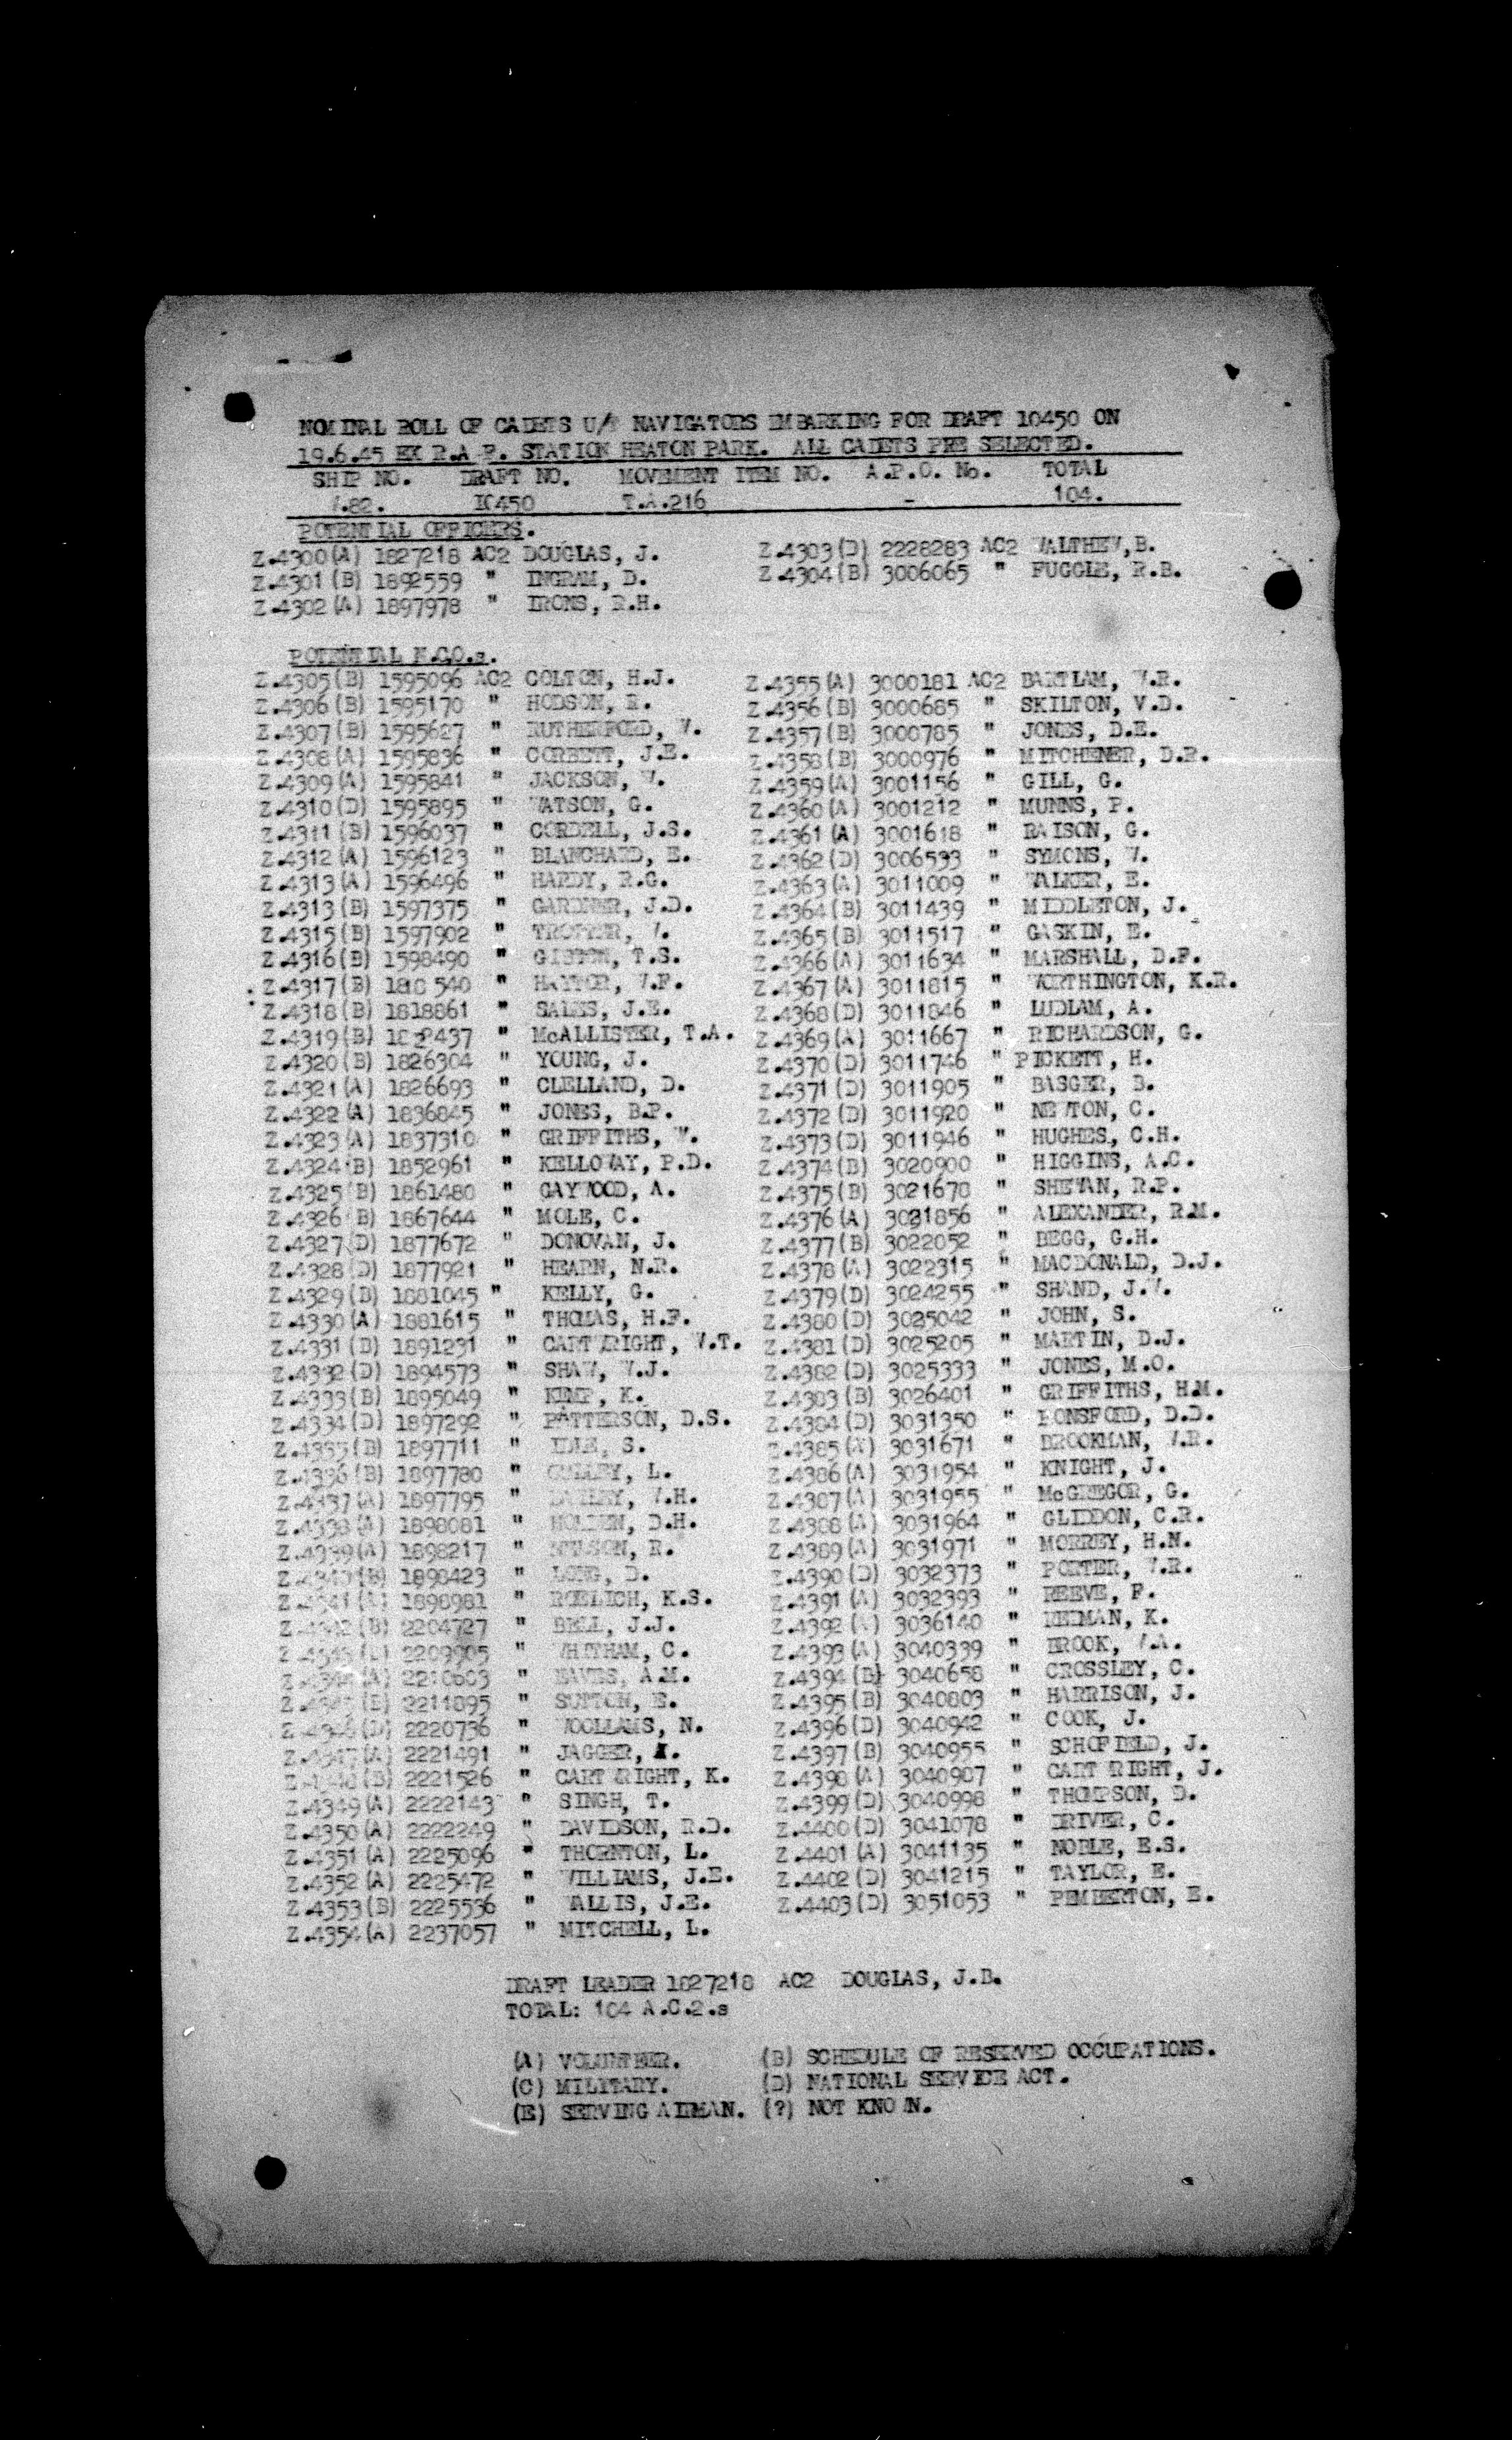 NOMINAL ROLL OF CADETS U/T NAVIGATORS EMBARKING FOR DRAFT 10450 ON
19.6.45 EX R.A.F. STATION HEATON PARK. ALL CADETS PRE SELECTED.
SHIP NO. DRAFT NO. MOVEMENT ITEM NO. A.P.O. No. TOTAL
10450 T.A.216 - 104.
POTENTIAL OFFICERS.
Z.4300(A) 1827218 AC2 DOUGLAS, J. Z.4303(D) 2228283 AC2 WALTHEW,B.
Z.4301(B) 1892559 " INGRAM, D. Z.4304(B) 3006065 " FUGGLE, R.B.
Z.4302(A) 1897978 " IRONS, R.H.
POTENTIAL N.C.O.s.
Z.4305(B) 1595096 AC2 COLTON, H.J. Z.4355(A) 3000181 AC2 BARTLAM, W.R.
Z.4306(B) 1595170 " HODSON, R. Z.4356(B) 3000685 " SKILTON, V.D.
Z.4307(B) 1595627 " RUTHERFORD, W. Z.4357(B) 3000785 " JONES, D.E.
Z.4308(A) 1595836 " CORBETT, J.E. Z.4358(B) 3000976 " MITCHENER, D.R.
Z.4309(A) 1595841 " JACKSON, W. Z.4359(A) 3001156 " GILL, G.
Z.4310(D) 1595895 " WATSON, G. Z.4360(A) 3001212 " MUNNS, P.
Z.4311(B) 1596037 " CORDELL, J.S. Z.4361(A) 3001618 " RAISON, G.
Z.4312(A) 1596123 " BLANCHARD, E. Z.4362(D) 3006533 " SYMONS, W.
Z.4313(A) 1596496 " HARDY, R.G. Z.4363(A) 3011009 " WALKER, E.
Z.4313(B) 1597375 " GARDNER, J.D. Z.4364(B) 3011439 " MIDDLETON, J.
Z.4315(B) 1597902 " TROTTER, W. Z.4365(B) 3011517 " GASKIN, E.
Z.4316(B) 1598490 " T.S. Z.4366(A) 3011634 " MARSHALL, D.F.
Z.4317(B) 540 " HAYTOR, W.F. Z.4367(A) 3011815 " WORTHINGTON, K.R.
Z.4318(B) 1818861 " SALES, J.E. Z.4368(D) 3011846 " LUDLAM, A.
Z.4319(B) " McALLISTER, T.A. Z.4369(A) 3011667 " RICHARDSON, G.
Z.4320(B) 1826304 " YOUNG, J. Z.4370(D) 3011746 " PICKETT, H.
Z.4321(A) 1826693 " CLELLAND, D. Z.4371(D) 3011905 " BASGER, B.
Z.4322(A) 1836845 " JONES, B.P. Z.4372(D) 3011920 " NEWTON, C.
Z.4323(A) 1837310 " GRIFFITHS, W. Z.4373(D) 3011946 " HUGHES, C.H.
Z.4324(B) 1852961 " KELLOWAY, P.D. Z.4374(B) 3020900 " HIGGINS, A.C.
Z.4325(B) 1861480 " GAYWOOD, A. Z.4375(B) 3021678 " SHEWAN, R.P.
Z.4326(B) 1867644 " MOLE, C. Z.4376(A) 3021856 " ALEXANDER, R.M.
Z.4327(D) 1877672 " DONOVAN, J. Z.4377(B) 3022052 " BEGG, G.H.
Z.4328(D) 1877921 " HEARN, N.R. Z.4378(A) 3022315 " MACDONALD, D.J.
Z.4329(B) 1881045 " KELLY, G. Z.4379(D) 3024255 " SHAND, J.W.
Z.4330(A) 1881615 " THOMAS, H.F. Z.4380(D) 3025042 " JOHN, S.
Z.4331(B) 1891231 " CARTWRIGHT, W.T. Z.4381(D) 3025205 " MARTIN, D.J.
Z.4332(D) 1894573 " SHAW, W.J. Z.4382(D) 3025333 " JONES, M.O.
Z.4333(B) 1895049 " KEMP, K. Z.4383(B) 3026401 " GRIFFITHS, H.M.
Z.4334(D) 1897292 " PATTERSON, D.S. Z.4384(D) 3031350 " PONSFORD, D.D.
Z.4335(B) 1897711 " IDLE, S. Z.4385(A) 3031671 " BROOKMAN, W.R.
Z.4336(B) 1897780 " L. Z.4386(A) 3031954 " KNIGHT, J.
Z.4337(A) 1897795 " W.H. Z.4387(A) 3031955 " McGREGOR, G.
Z.4338(A) 1898081 " HOLDEN, D.H. Z.4388(A) 3031964 " GLIDDON, C.R.
Z.4339(A) 1898217 " R. Z.4389(A) 3031971 " MORREY, H.N.
Z.4340(B) 1898423 " LONG, D. Z.4390(D) 3032373 " PORTER, W.R.
Z.4341(A) 1898981 " ROELICH, K.S. Z.4391(A) 3032393 " REEVE, F.
Z.4342(B) 2204727 " BELL, J.J. Z.4392(A) 3036140 " REDMAN, K.
2209905 " WHITHAM, C. Z.4393(A) 3040339 " BROOK, W.A.
Z.4344(A) 2210603 " EAVES, A.M. Z.4394(B) 3040658 " CROSSLEY, C.
Z.4345(B) 2211895 " SUTTON, E. Z.4395(B) 3040803 " HARRISON, J.
Z.4346(D) 2220736 " WOOLLAMS, N. Z.4396(D) 3040942 " COOK, J.
Z.4347(A) 2221491 " JAGGER, Z.4397(B) 3040955 " SCHOFIELD, J.
Z.4348(B) 2221526 " CARTWRIGHT, K. Z.4398(A) 3040987 " CARTWRIGHT, J.
Z.4349(A) 2222143 " SINGH, T. Z.4399(D) 3040998 " THOMPSON, D.
Z.4350(A) 2222249 " DAVIDSON, R.D. Z.4400(D) 3041078 " DRIVER, C.
Z.4351(A) 2225096 " THORNTON, L. Z.4401(A) 3041135 " NOBLE, E.S.
Z.4352(A) 2225472 " WILLIAMS, J.E. Z.4402(D) 3041215 " TAYLOR, E.
Z.4353(B) 2225536 " WALLIS, J.E. Z.4403(D) 3051053 " PEMBERTON, E.
Z.4354(A) 2237057 " MITCHELL, L.
DRAFT LEADER 1827218 AC2 DOUGLAS, J.B.
TOTAL: 104 A.C.2.s
(A) VOLUNTEER. (B) SCHEDULE OF RESERVED OCCUPATIONS.
(C) MILITARY. (D) NATIONAL SERVICE ACT.
(E) SERVING AIRMAN. (?) NOT KNOWN.